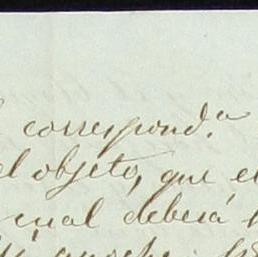 correspond.ª
el objeto, que e
cual deberá
anoche